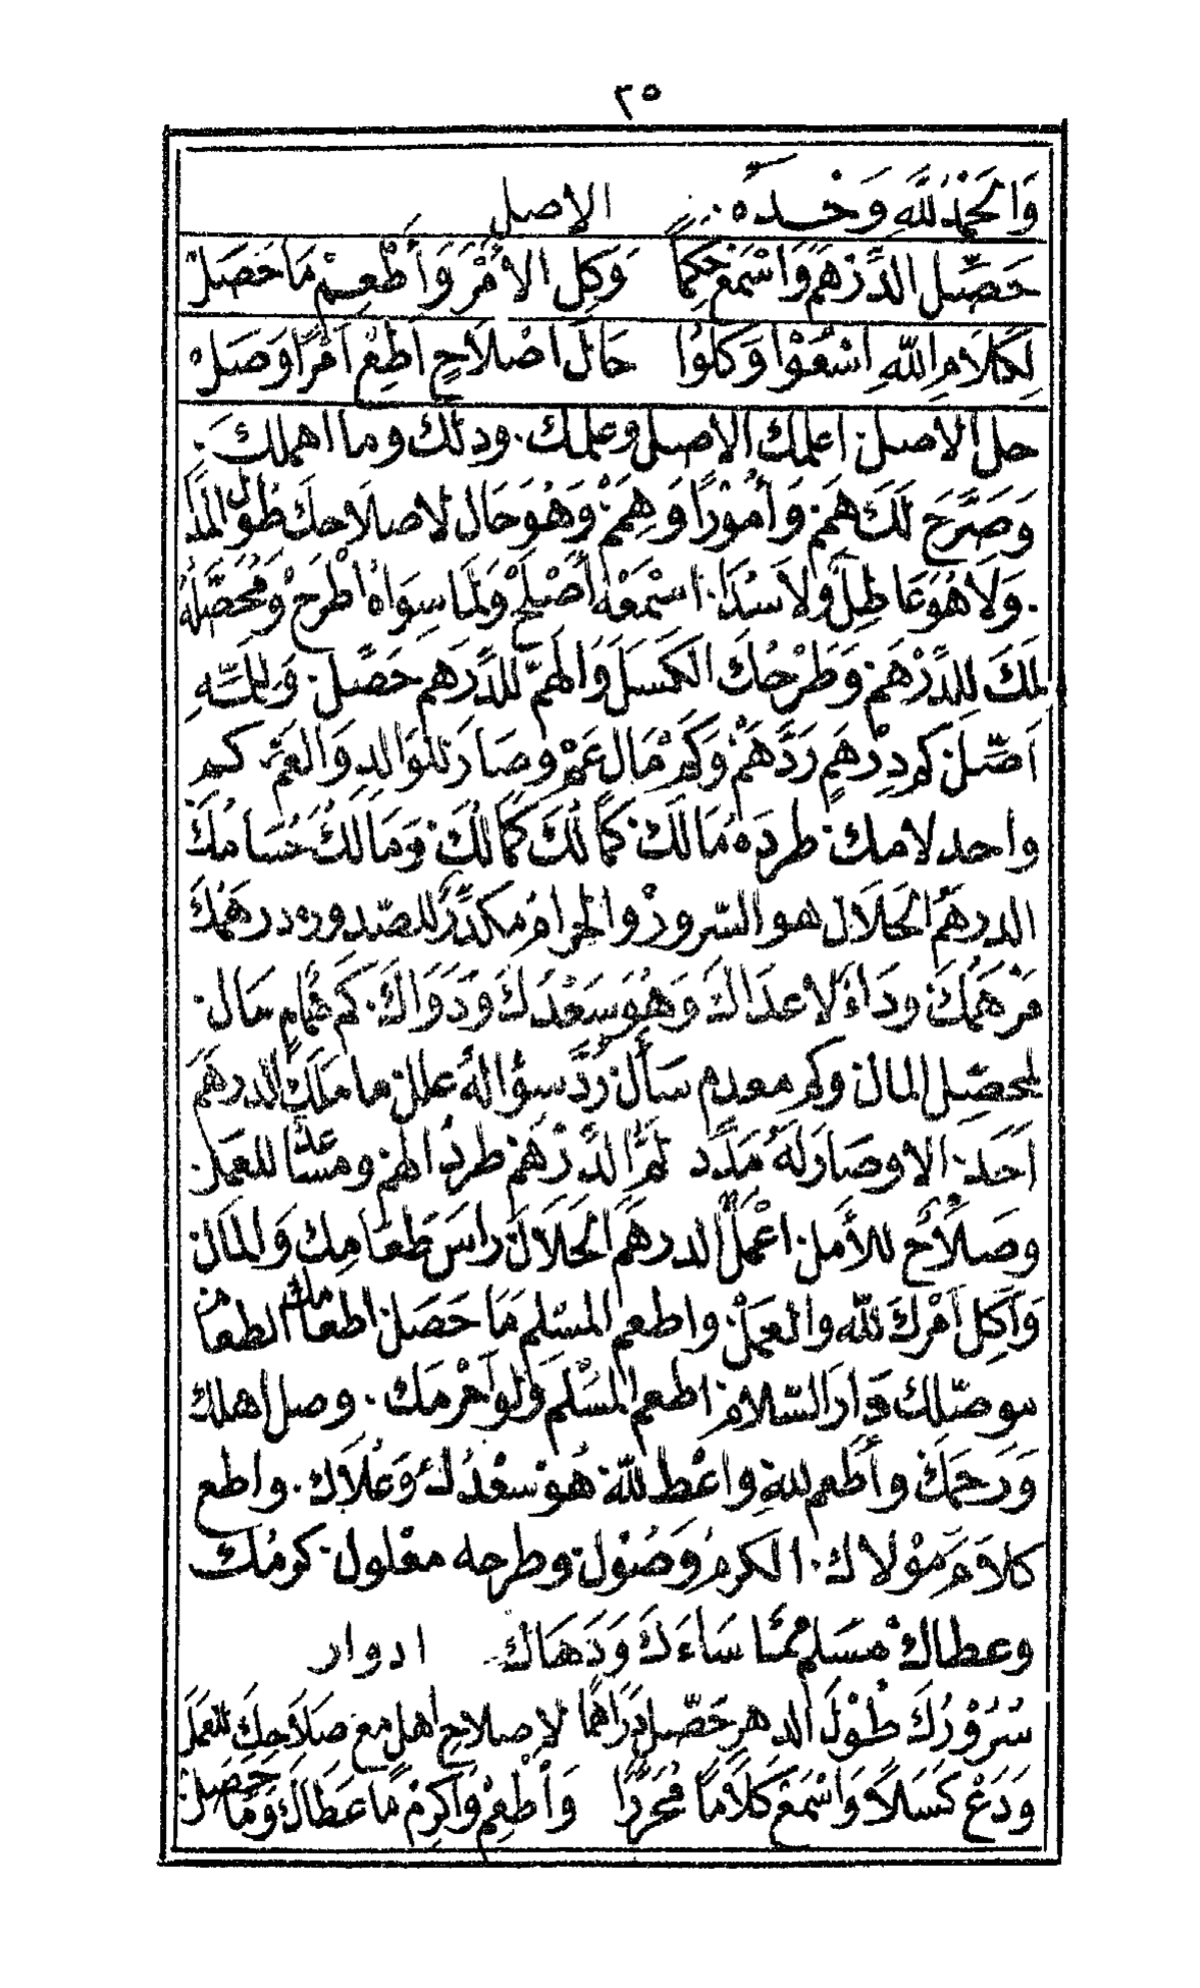 ٣٥
وَالحَمْدُ للهِ وَحْدَهُ . الاصل
حَصِّلِ الدِّرْهَمَ وَاسْمَعْ حِكَمًا وَكِلِ الامْرَ وَأَطْعِمْ مَا حَصَلْ
لِكَلَامِ اللهِ اسْعَوْا وَكِلُوْا حَالَ اصْلَاحٍ أَطِعْ امْرًا وَصَلْ
حل الاصل . اعلمك الاصل وعملك . ودلك وما اهملك .
وَصَرَّحَ لَكَ هَمَّ . وَأُمُوْرًا وَهِمَمْ . وَهُوَ حَال لاصلاحك طُوْل المدَا
. وَلَا هُوَ عَاطِلٌ وَلَا سُدَا . اسْمَعْهُ أَصْلَحْ وَلِمَا سِوَاهُ اطْرَحْ وَمُحَصِّلُهُ
لَكَ لِلدِّرْهَمْ . وَطَرْحُكَ الكَسَلَ وَالهَمَّ للدِّرَهم حَصِّل . وَلِلّهِ
اَصِّلْ . كم دِرْهَمٍ رَدَّ هَمّ . وَكَمْ مَال عَمْ وصَارَ للوَالدِ وَالعَمّ . كم
واحد لامك . طردَهُ مَالك . كمَالُكَ كمَالك . وَمَالُكَ حُسَامُكَ
الدرهَمُ الحَلَال هو السّرورْ والحرامُ مكدِّرٌ للصّدور ودرهمُكَ
مَرْهَمُكَ . ودَاءٌ لاعدَاكَ وَهُوَ سَعْدُكَ وَدَوَاكَ . كَم هُمَامٍ سَال .
لمحصِّلِ المال . وكم معدم سَأل . رُدَّ سؤالهُ علل . ما ملكَ الدرهَمَ
اَحَدْ . الا وصَارَ لَهُ مَدَدْ لمُّ الدِّرْهَم . طردُ الهم . ومسَاعدًا للعَمل .
وصَلَاحٌ للأَمل . اعْمَل الدرهَمَ الحَلَال . راسَ طَعَامِك وَالمَال .
وَأَكِل أَمْرَكَ لله والعمَلْ . واطعم المسْلم مَا حَصَلْ . اطعامك الطعام
موصّلك دَارَ السّلام . اطعم المسْلم وَلو احْرمَك . وصل اهلك
وَرَحمَكَ . وأَطعم للهِ واعْط لله . هُوَ سعْدُكَ وَعُلَاك . واطع
كلاَمَ مَوْلاك . الكرمُ وَصُوْل . وطرحه معْلول . كرمُك
وعطاك مسَلم مْمّا سَاءَكَ وَدَهَاك ادوار
سُرُوْرُكَ طُوْلَ الدهر حَصِّل دَرَاهما لاصلاح اهل مع صَلَاحِكَ للعمَل
وَدَعْ كَسَلاً وَاسْمَعْ كَلَامًا مُحَرَّرًا وَأَطْعِمْ وَأَكرِمْ مَا عَطَاكَ وَمَا حَصَلْ